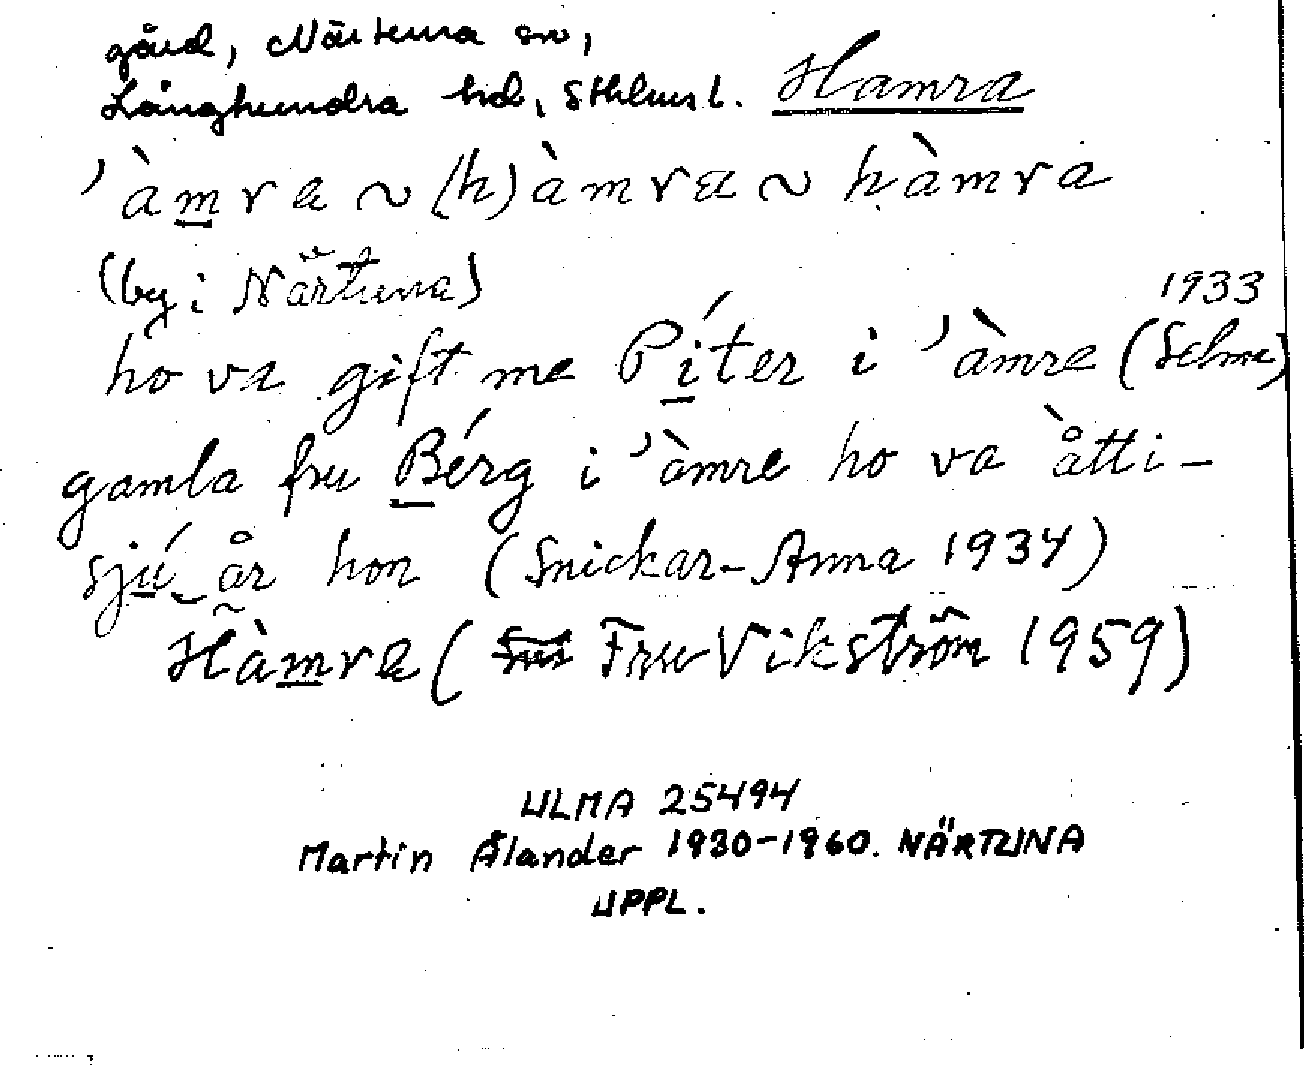 gård, Närtuna sn,
Långhundra hd, Sthlms l. Hamra
’àmra ~ (h)àmra ~ hàmra
(by i Närtuna)
1933
ho va gift me Píter i ’àmre (Selma)
gamla fru Bérg i ’àmre ho va åtti-
sjú år hon (Snickar-Anna 1934)
Hàmra (Fru Vikström 1959)
ULMA 25494
Martin Ålander 1930-1960. NÄRTUNA
UPPL.